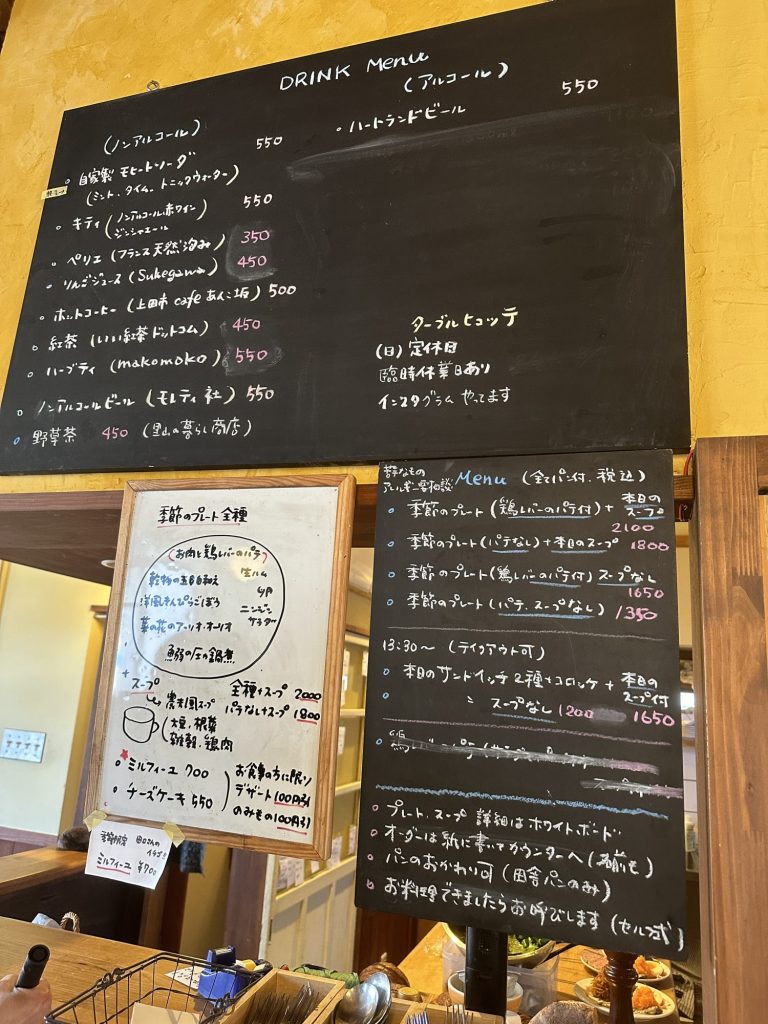 DRINK Menu
(ノンアルコール)
自家製 モヒートソーダ 550
(ミント、タイム、トニックウォーター)
キティ (ノンアルコール赤ワイン ジンジャエール) 550
ペリエ (フランス天然泡み) 350
りんごジュース (Sukegawa) 450
ホットコーヒー (上田市 cafe あんこ坂) 500
紅茶 (いい紅茶ドットコム) 450
ハーブティ (makomoko) 550
ノンアルコールビール (モルティ社) 550
野草茶 450 (里山の暮らし商店)
(アルコール)
ハートランドビール 550
ターブルヒュッテ
(日) 定休日
臨時休業日あり
インスタグラム やってます
季節のプレート全種
(お肉と鶏レバーのパテ)
生ハム
乾物の五目和え
洋風きんぴらごぼう
ニンジン
サラダ
菜の花のアーリオ・オーリオ
鰯の圧力鍋煮
+ スープ
全種+スープ 2000
パテなし+スープ 1800
農夫風スープ
大豆・根菜
雑穀・鶏肉
ミルフィーユ 700
チーズケーキ 550
お食事の方に限り
デザート100円引
のみもの100円引
イチゴ
ミルフィーユ ¥700
苦手なもの
アレルギー要相談
Menu (全てパン付、税込)
季節のプレート (鶏レバーのパテ付) + 本日のスープ 2100
季節のプレート (パテなし) + 本日のスープ 1800
季節のプレート (鶏レバーのパテ付) スープなし 1650
季節のプレート (パテ、スープなし) 1350
13:30〜 (テイクアウト可)
本日のサンドイッチ2種+コロッケ + 本日のスープ付 1650
〃 スープなし 1200
プレート、スープ 詳細はホワイトボード
オーダーは紙に書いてカウンターへ (名前も)
パンのおかわり可 (田舎パンのみ)
お料理できましたらお呼びします (セルフ式)